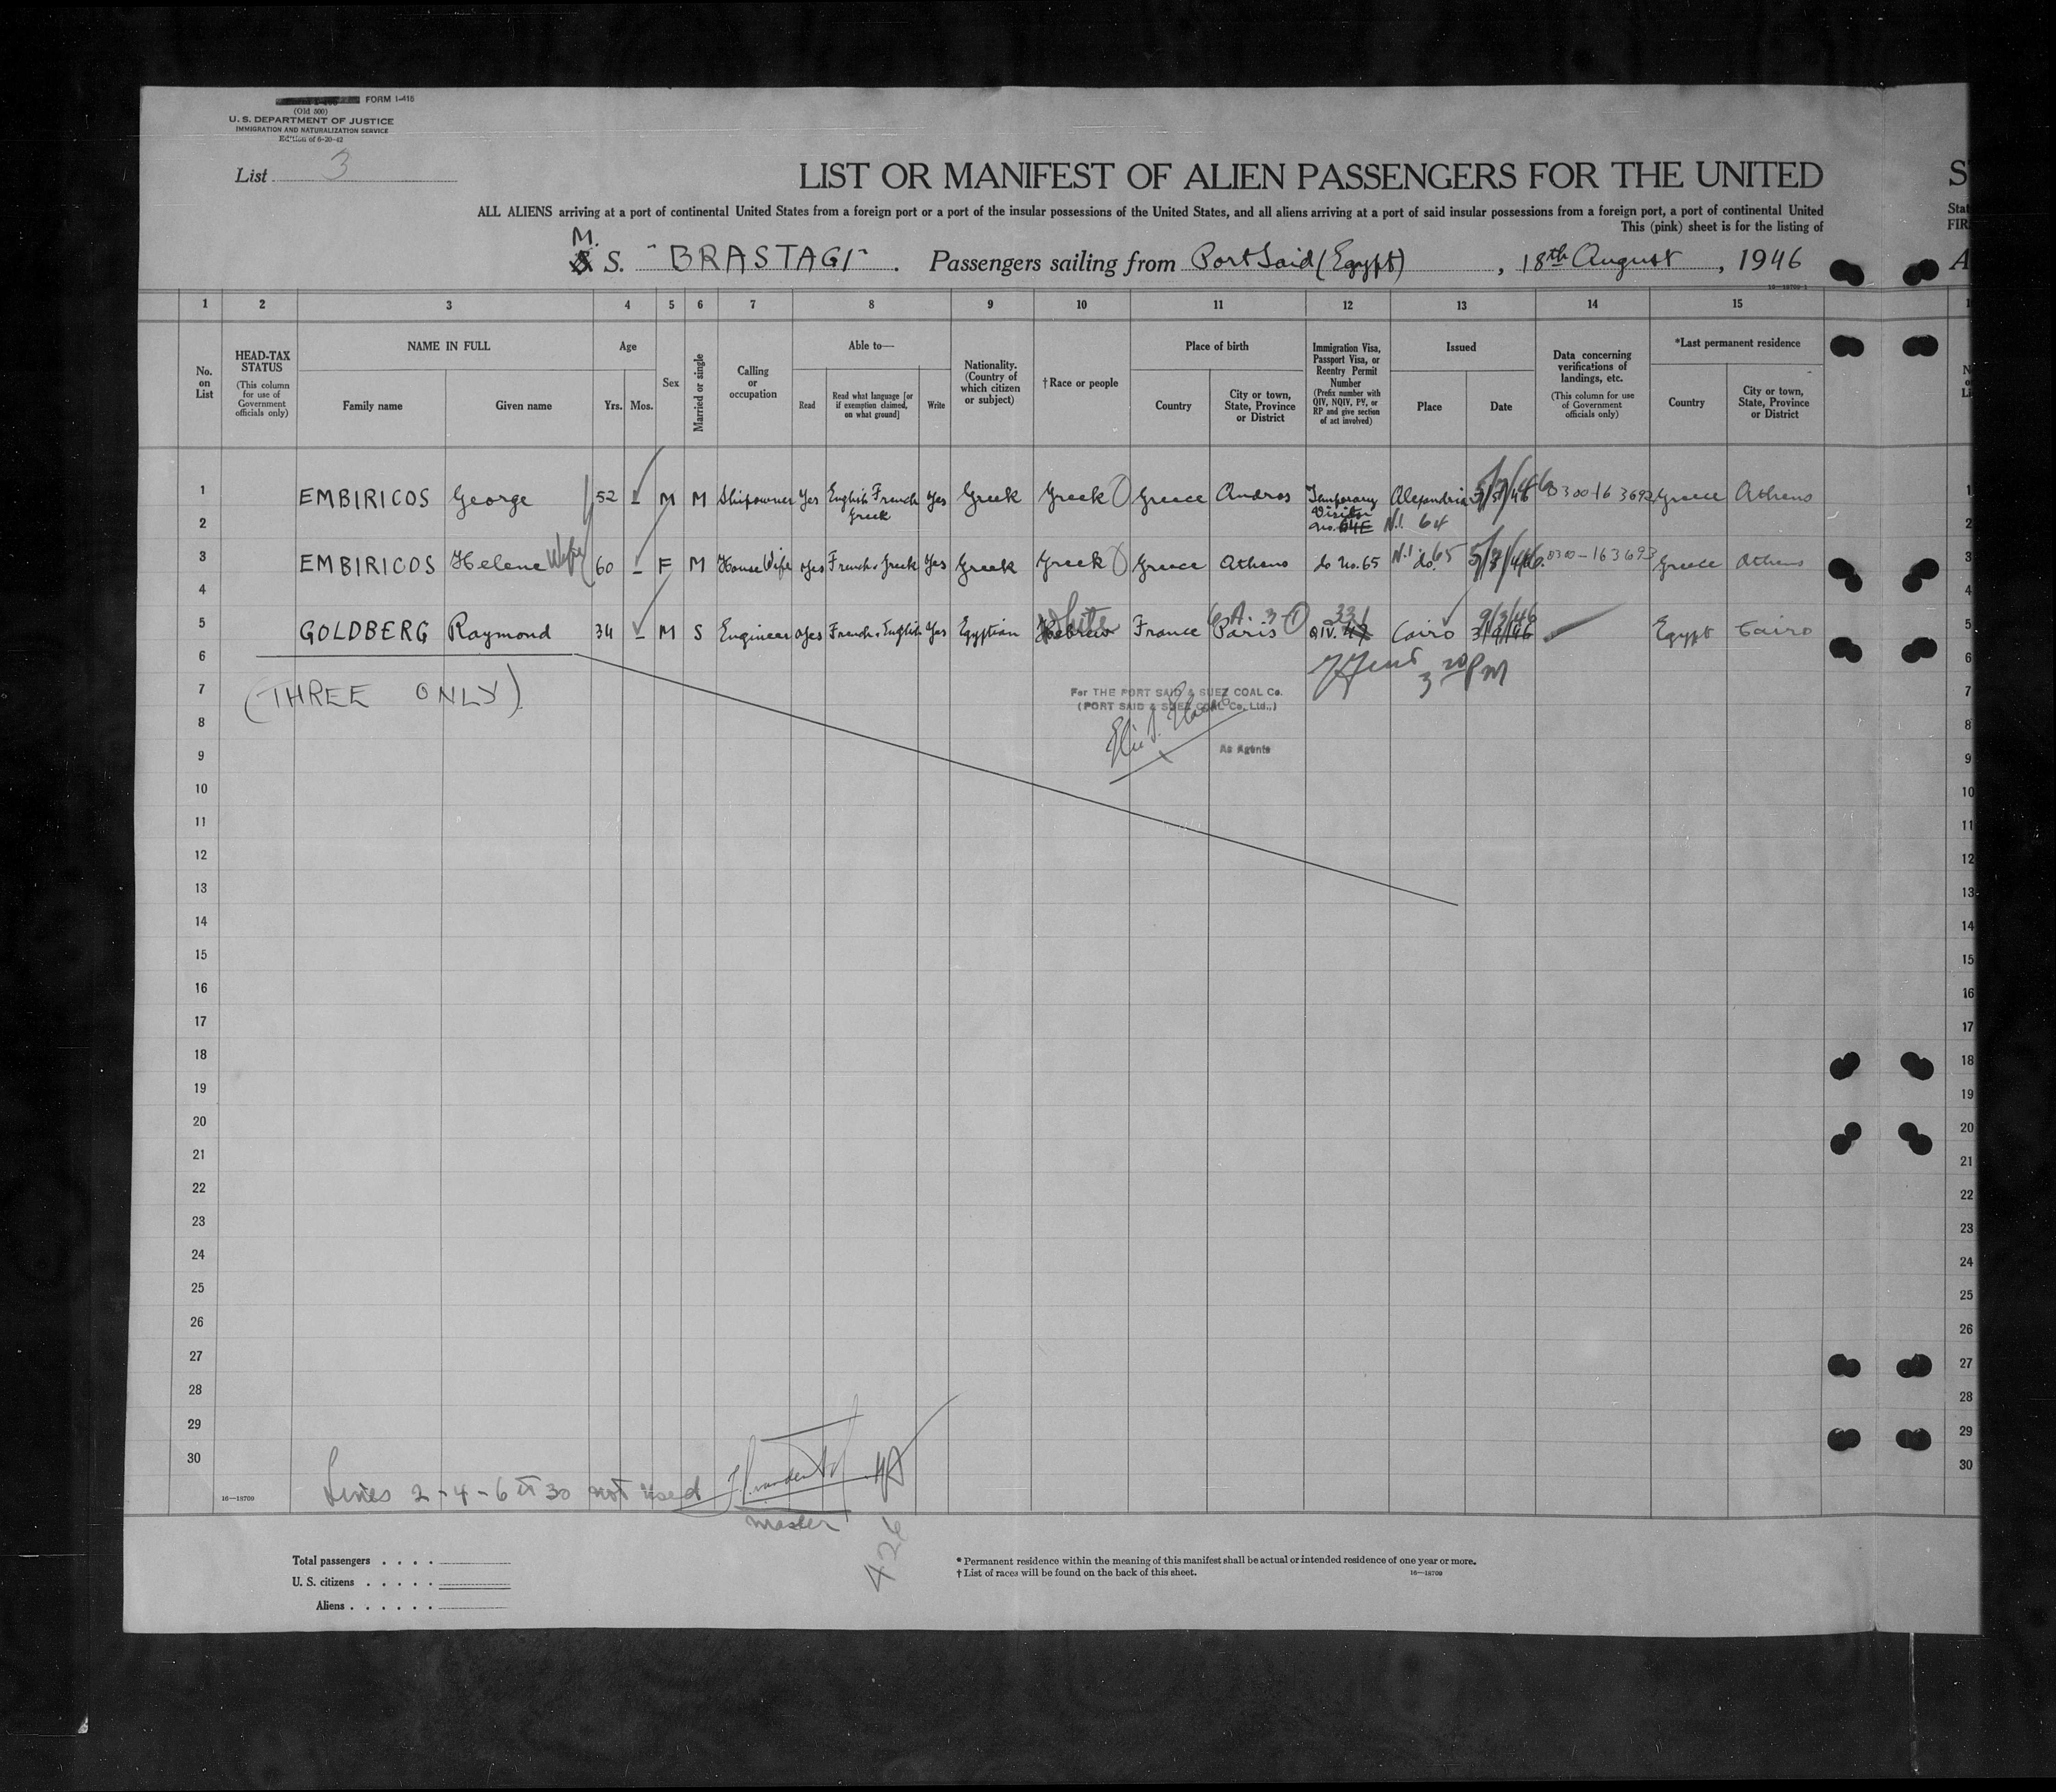 FORM I-415
(Old 500)
U. S. DEPARTMENT OF JUSTICE
IMMIGRATION AND NATURALIZATION SERVICE
Edition of 6-20-42
List 3
LIST OR MANIFEST OF ALIEN PASSENGERS FOR THE UNITED
ALL ALIENS arriving at a port of continental United States from a foreign port or a port of the insular possessions of the United States, and all aliens arriving at a port of said insular possessions from a foreign port, a port of continental United
This (pink) sheet is for the listing of
M. S. "BRASTAGI". Passengers sailing from Port Said (Egypt), 18th August, 1946
16—18709-1
1 2 3 4 5 6 7 8 9 10 11 12 13 14 15
No. on List
HEAD-TAX STATUS
(This column for use of Government officials only)
NAME IN FULL
Family name
Given name
Age
Yrs. Mos.
Sex
Married or single
Calling or occupation
Able to—
Read
Read what language [or if exemption claimed, on what ground]
Write
Nationality. (Country of which citizen or subject)
†Race or people
Place of birth
Country
City or town, State, Province or District
Immigration Visa, Passport Visa, or Reentry Permit Number
(Prefix number with QIV, NQIV, PV, or RP and give section of act involved)
Issued
Place
Date
Data concerning verifications of landings, etc.
(This column for use of Government officials only)
*Last permanent residence
Country
City or town, State, Province or District
1 EMBIRICOS George 52 – M M Shipowner Yes English French Greek Yes Greek Greek Greece Andros Temporary Visitor No. Alexandria N.I. 64 0300-163692 Greece Athens
2
3 EMBIRICOS Helene Wife 60 – F M House Wife Yes French. Greek Yes Greek Greek Greece Athens do No. 65 N.I. do. 65 0300-163693 Greece Athens
4
5 GOLDBERG Raymond 34 – M S Engineer Yes French. English Yes Egyptian White Hebrew France Paris QIV. 331 Cairo 9/3/46 Egypt Cairo
6
7 (THREE ONLY)
For THE PORT SAID & SUEZ COAL Co.
(PORT SAID & SUEZ COAL Co. Ltd.,)
8
As Agents
9
10
11
12
13
14
15
16
17
18
19
20
21
22
23
24
25
26
27
28
29
30
Lines 2-4-6 to 30 not used
16—18709
master
426
Total passengers . . . .
U. S. citizens . . . . .
Aliens . . . . . .
* Permanent residence within the meaning of this manifest shall be actual or intended residence of one year or more.
† List of races will be found on the back of this sheet.
16—18709